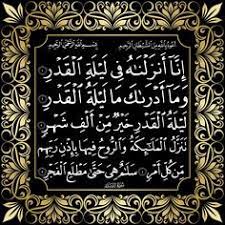 أعوذ بالله من الشيطان الرجيم بسم الله الرحمن الرحيم
إِنَّا أَنزَلْنَٰهُ فِى لَيْلَةِ ٱلْقَدْرِ
وَمَآ أَدْرَىٰكَ مَا لَيْلَةُ ٱلْقَدْرِ
لَيْلَةُ ٱلْقَدْرِ خَيْرٌ مِّنْ أَلْفِ شَهْرٍ
تَنَزَّلُ ٱلْمَلَٰٓئِكَةُ وَٱلرُّوحُ فِيهَا بِإِذْنِ رَبِّهِم
مِّن كُلِّ أَمْرٍ سَلَٰمٌ هِىَ حَتَّىٰ مَطْلَعِ ٱلْفَجْرِ